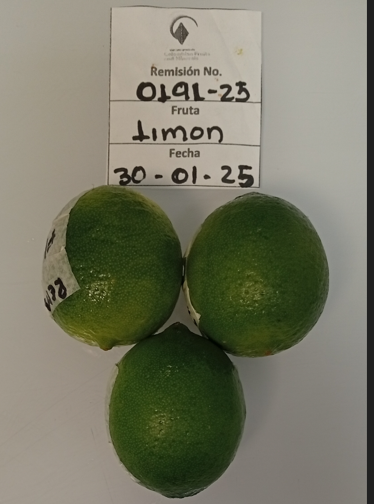 Remisión No.
0191-25
Fruta
Limon
Fecha
30-01-25